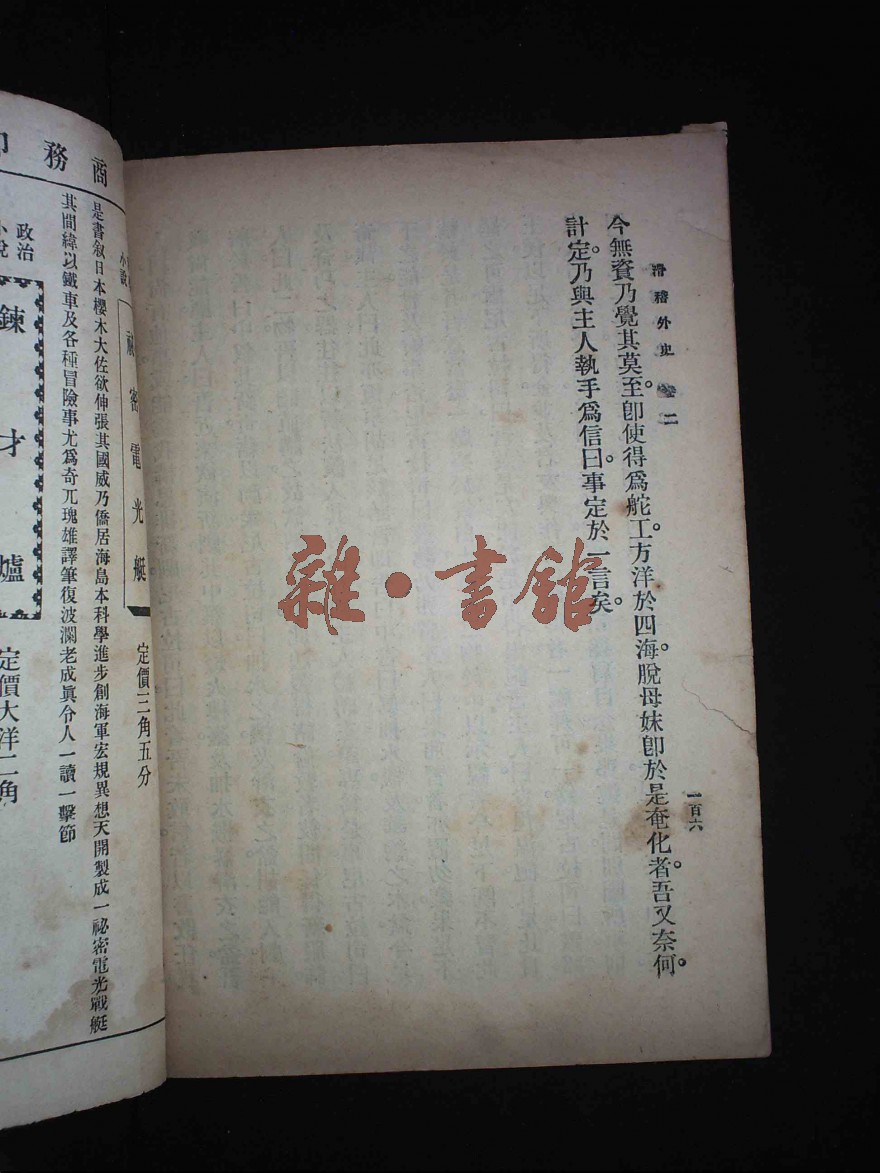 滑稽外史 卷二
一百六
今無資乃覺其莫至。卽使得爲舵工。方洋於四海。脫母妹卽於是奄化者。吾又奈何。
計定。乃與主人執手爲信曰。事定於一言矣。
雜·書館
商務印
祕密電光艇
定價三角五分
是書叙日本櫻木大佐欲伸張其國威乃僑居海島本科學進步創海軍宏規異想天開製成一祕密電光戰艇
其間緯以鐵車及各種冒險事尤爲奇兀瑰雄譯筆復波瀾老成眞令人一讀一擊節
政治小說
鍊才爐
定價大洋二角